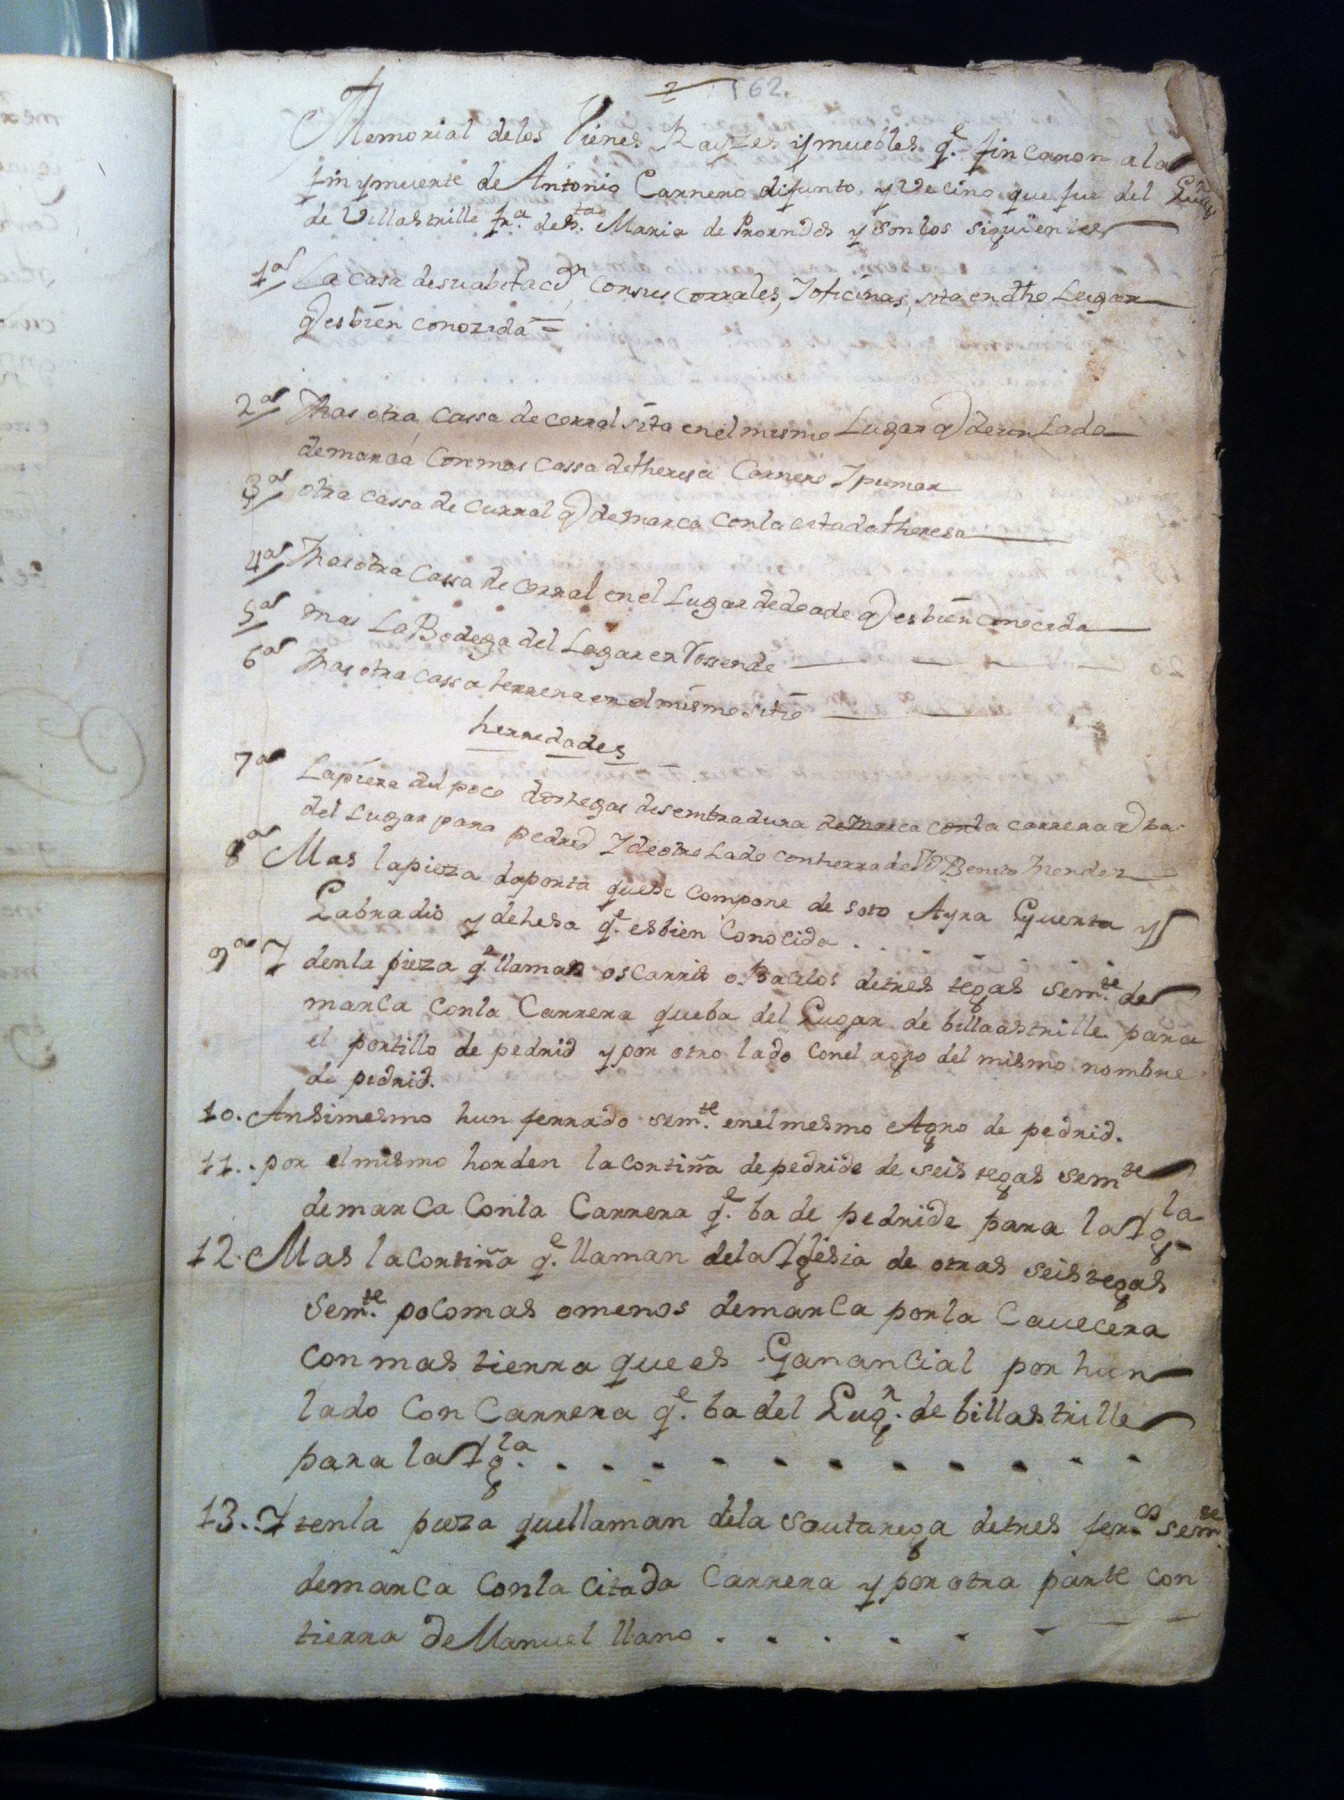 2 562.
Memorial de los Vienes Rayzes y muebles q.e fincaron a la
fin y muerte de Antonio Carnero difunto, y Vecino que fue del Lug.r
de Villastrille fr.a de S.ta Maria de Prorendes y son los siguientes
1a La casa desu abitac.on con sus corrales, Y oficinas, sita en dho Lugar
q) es bien conozida =
2a Mas otra cassa de corral sita en el mismo Lugar q) de un Lado
demarca con mas cassa de theresa Carnero Y pumar
3a otra cassa de currral q) demarca con la citada theresa
4a Mas otra cassa de corral en el Lugar de doade q) es bien conocida
5a mas La Bodega del Lagar en Vossende
6a Mas otra cassa terrena en el mismo sitio
herredades
7a La pieza del poco dostegas de sembradura demarca con la carrera q) ba
del Lugar para pedrid Y de otro Lado con tierra de Dn Benito Mendez
8a Mas la pieza daporta que se compone de soto Ayra Guerta y
Labradio y dehesa q.e es bien Conocida . . . .
9a Y denla pieza q.e llaman os carris o Bacelos detres tegas sem.te de
marca conla Carrera queba del Lugar de billaastrille para
el portillo de pedrid y por otro lado conel agro del mismo nombre
de pedrid.
10. Ansimesmo hun ferrado sem.te enelmesmo Agro de pedrid.
11. . por elmismo horden la cortiña de pedride de seis tegas sem.te
demarca conla Carrera q.e ba de pedride para la Yg.la
12. Mas la cortiña q.e llaman dela Yglesia de otras seis tegas
sem.te poco mas omenos demarca por la Cavecera
con mas tierra que es Ganancial por hun
lado con Carrera q.e ba del Lug.r de billastrille
para la Yg.la . . . . . . . . . . . . .
13. . Y tenla pieza quellaman dela soutarega detres fer.os sem.te
demarca conla citada Carrera y por otra parte con
tierra de Manuel llano . . . . . .